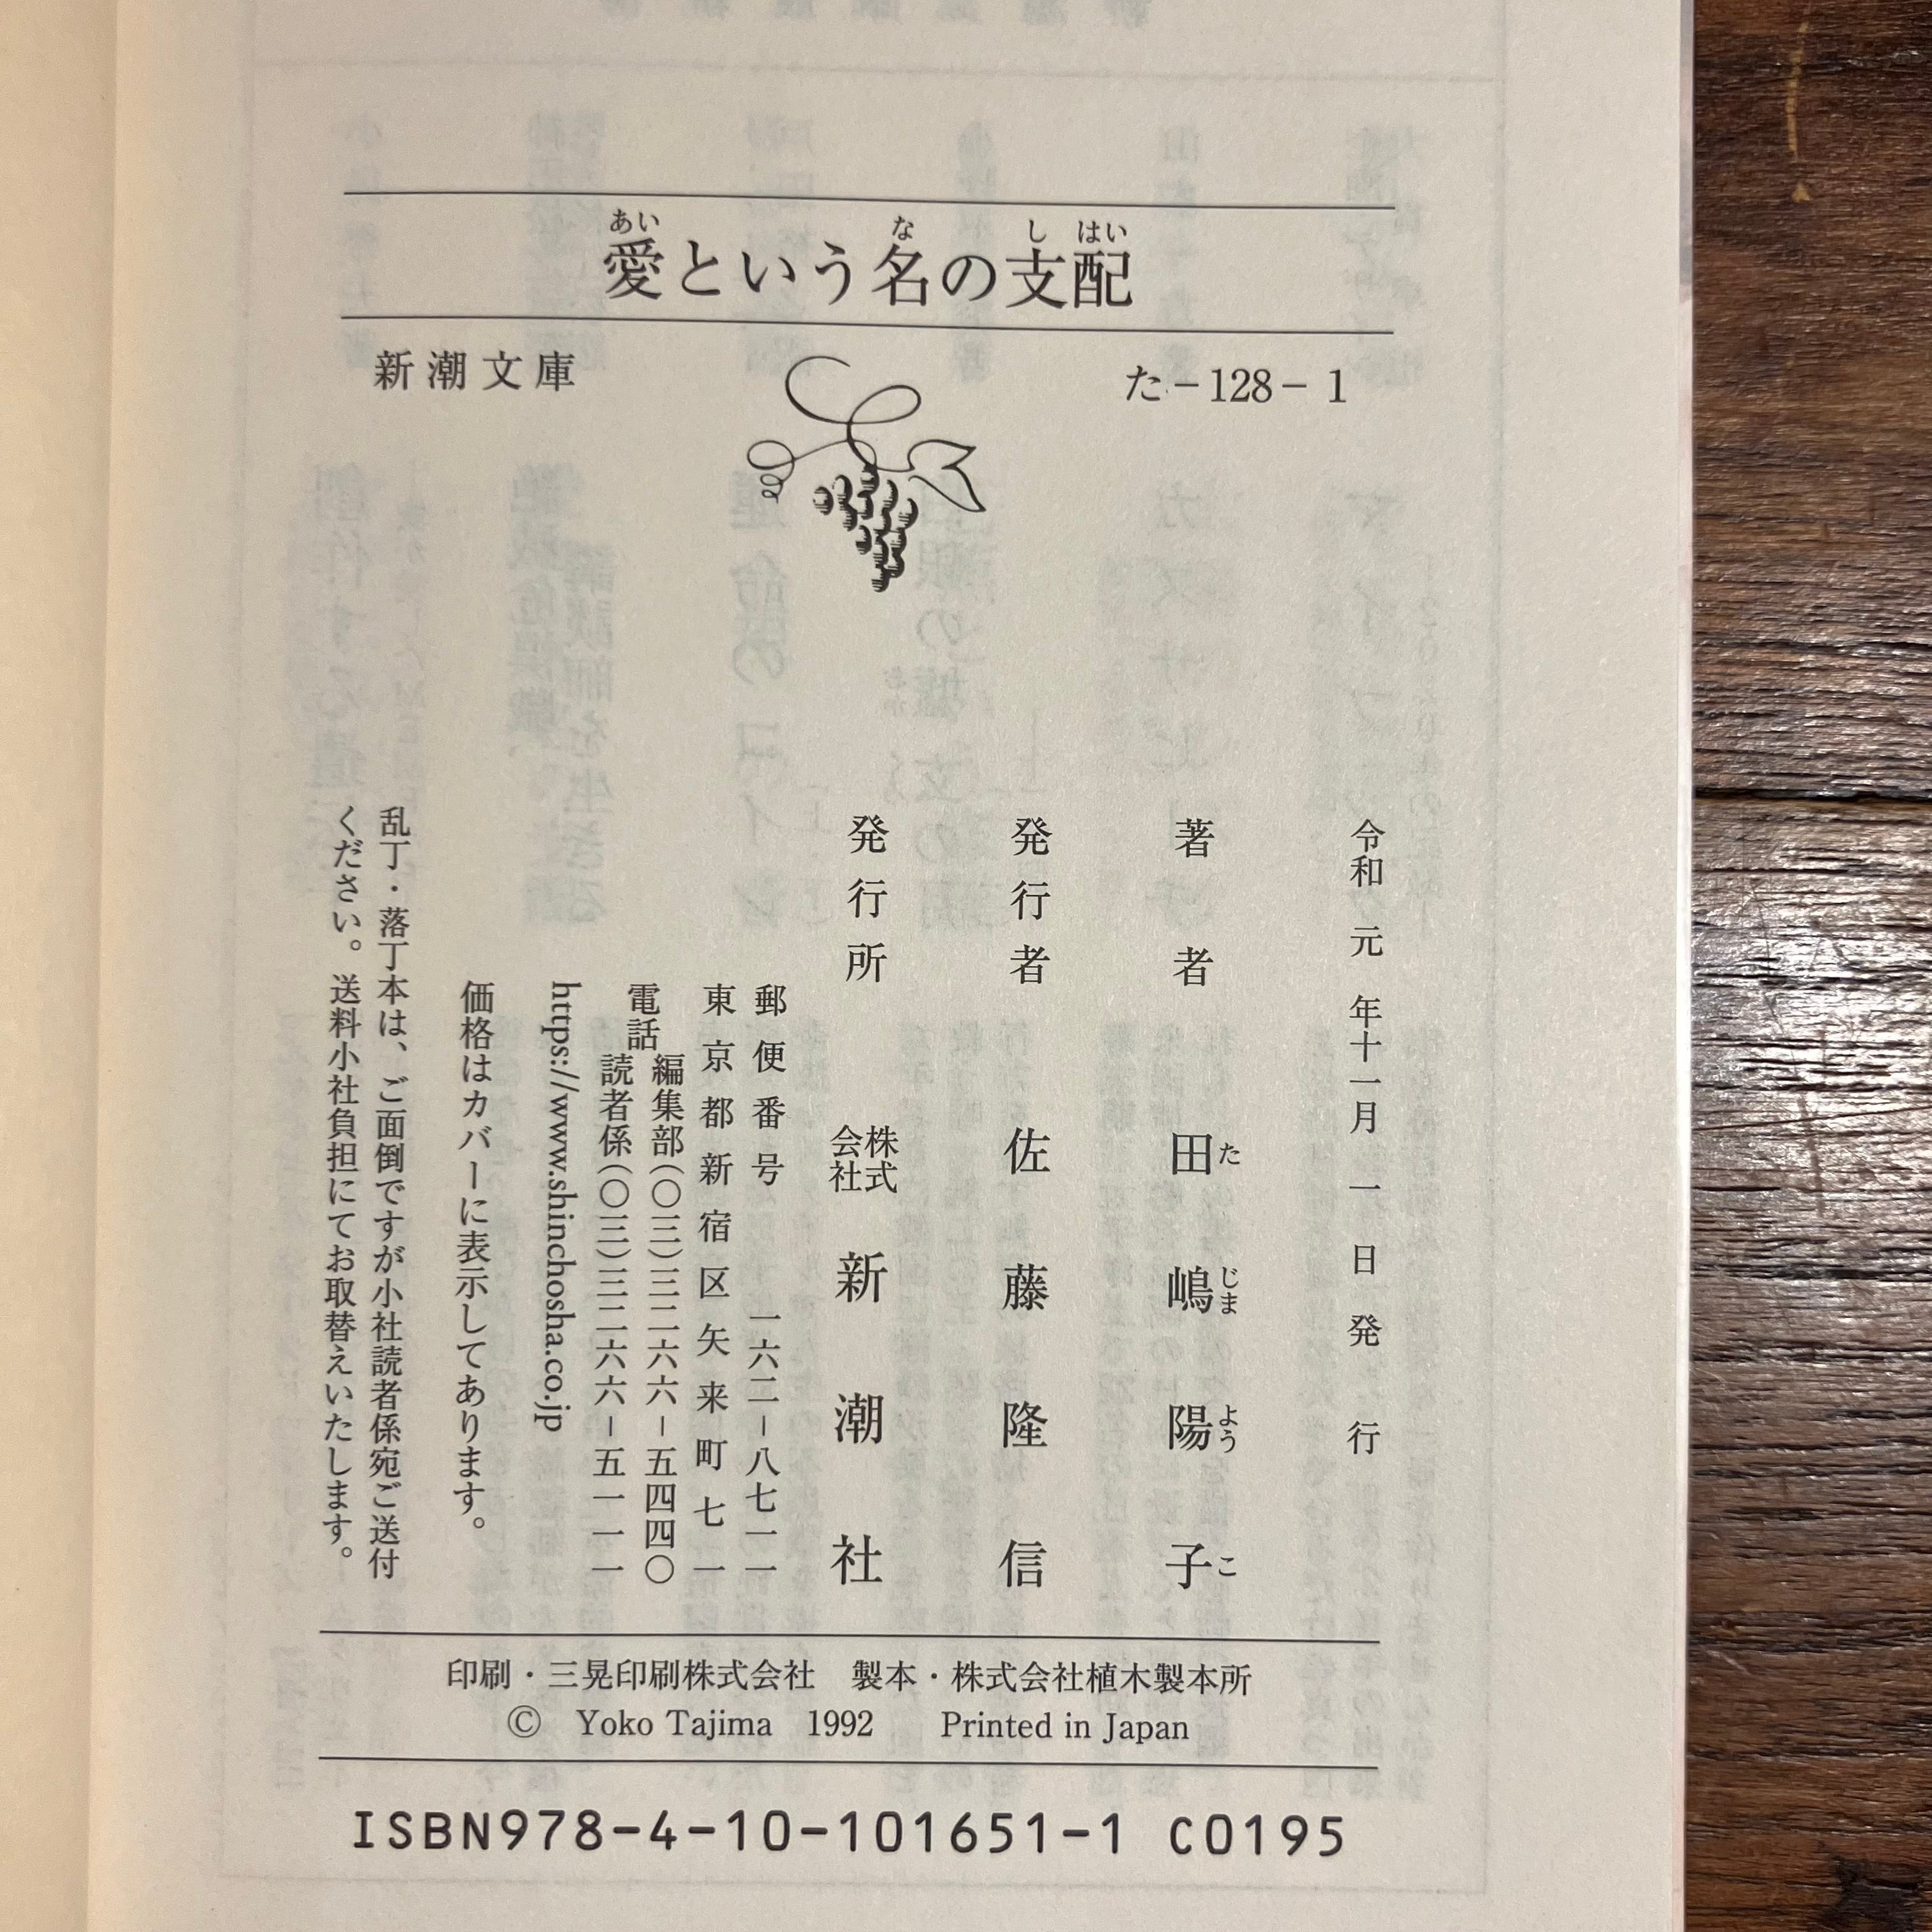 愛という名の支配
新潮文庫
た－128－1
令和元年十一月一日発行
著者 田嶋陽子
発行者 佐藤隆信
発行所 株式会社 新潮社
郵便番号 一六二－八七一一
東京都新宿区矢来町七一
電話 編集部(〇三)三二六六－五四四〇
読者係(〇三)三二六六－五一一一
https://www.shinchosha.co.jp
価格はカバーに表示してあります。
乱丁・落丁本は、ご面倒ですが小社読者係宛ご送付
ください。送料小社負担にてお取替えいたします。
印刷・三晃印刷株式会社 製本・株式会社植木製本所
© Yoko Tajima 1992 Printed in Japan
ISBN978-4-10-101651-1 C0195